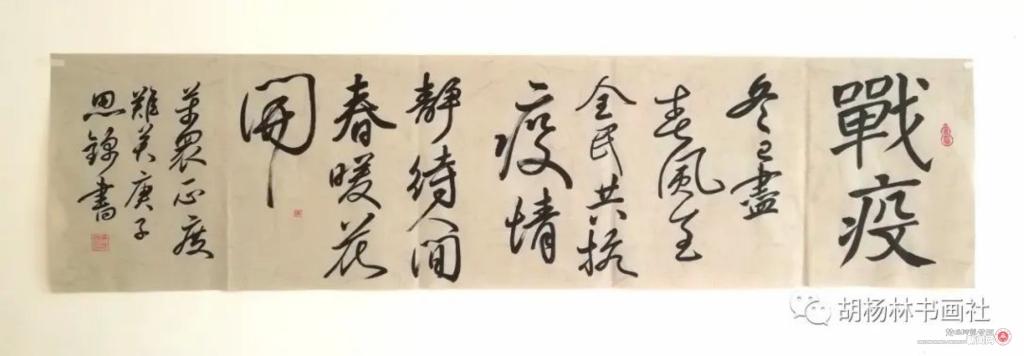 戰疫
冬已盡
春風至
全民共抗
疫情
靜待人間
春暖花
開
萬眾正度
難关庚子
思錦書
胡杨林书画社
新闻网